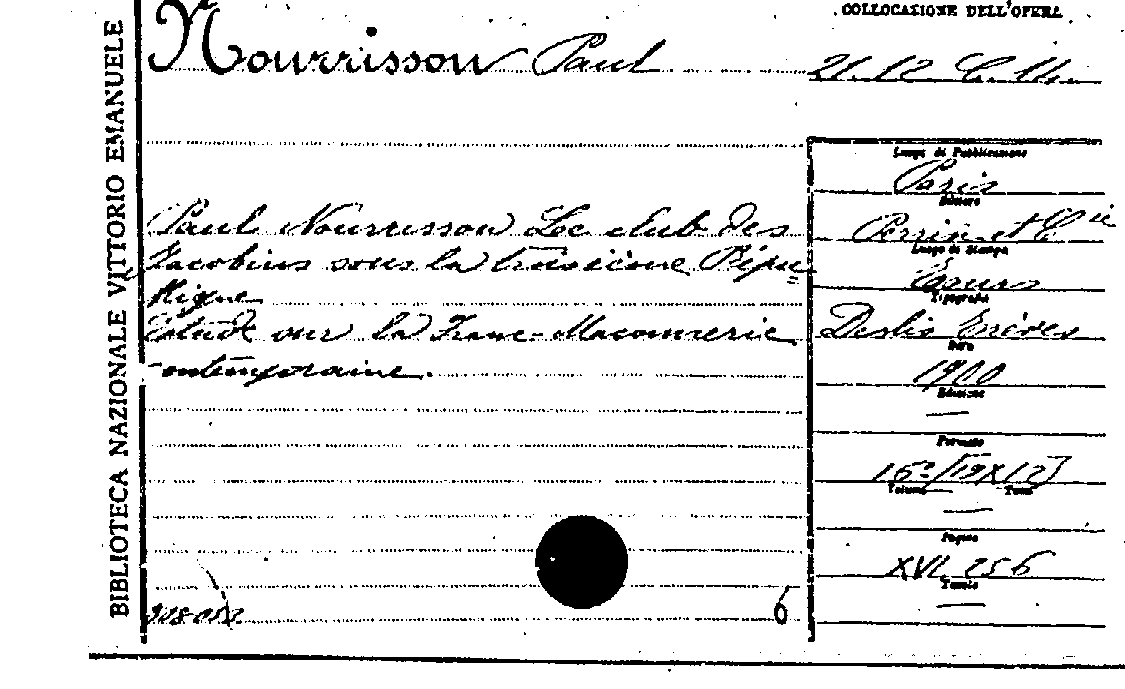 COLLOCAZIONE DELL'OPERA
Nourrisson Paul
21. 12
BIBLIOTECA NAZIONALE VITTORIO EMANUELE
Paul Nourrisson Le club des
Jacobins sous la troisième Répu
blique
Étude sur la Franc-Maconnerie
contemporaine.
6
Luogo di Pubblicazione
Paris
Editore
Perrin et Cie
Luogo di Stampa
Tours
Tipografia
Deslis Frères
Data
1900
Edizione
—
Formato
16° [19X12]
Volume Tomo
—
Pagine
XVI, 256
Tavole
—